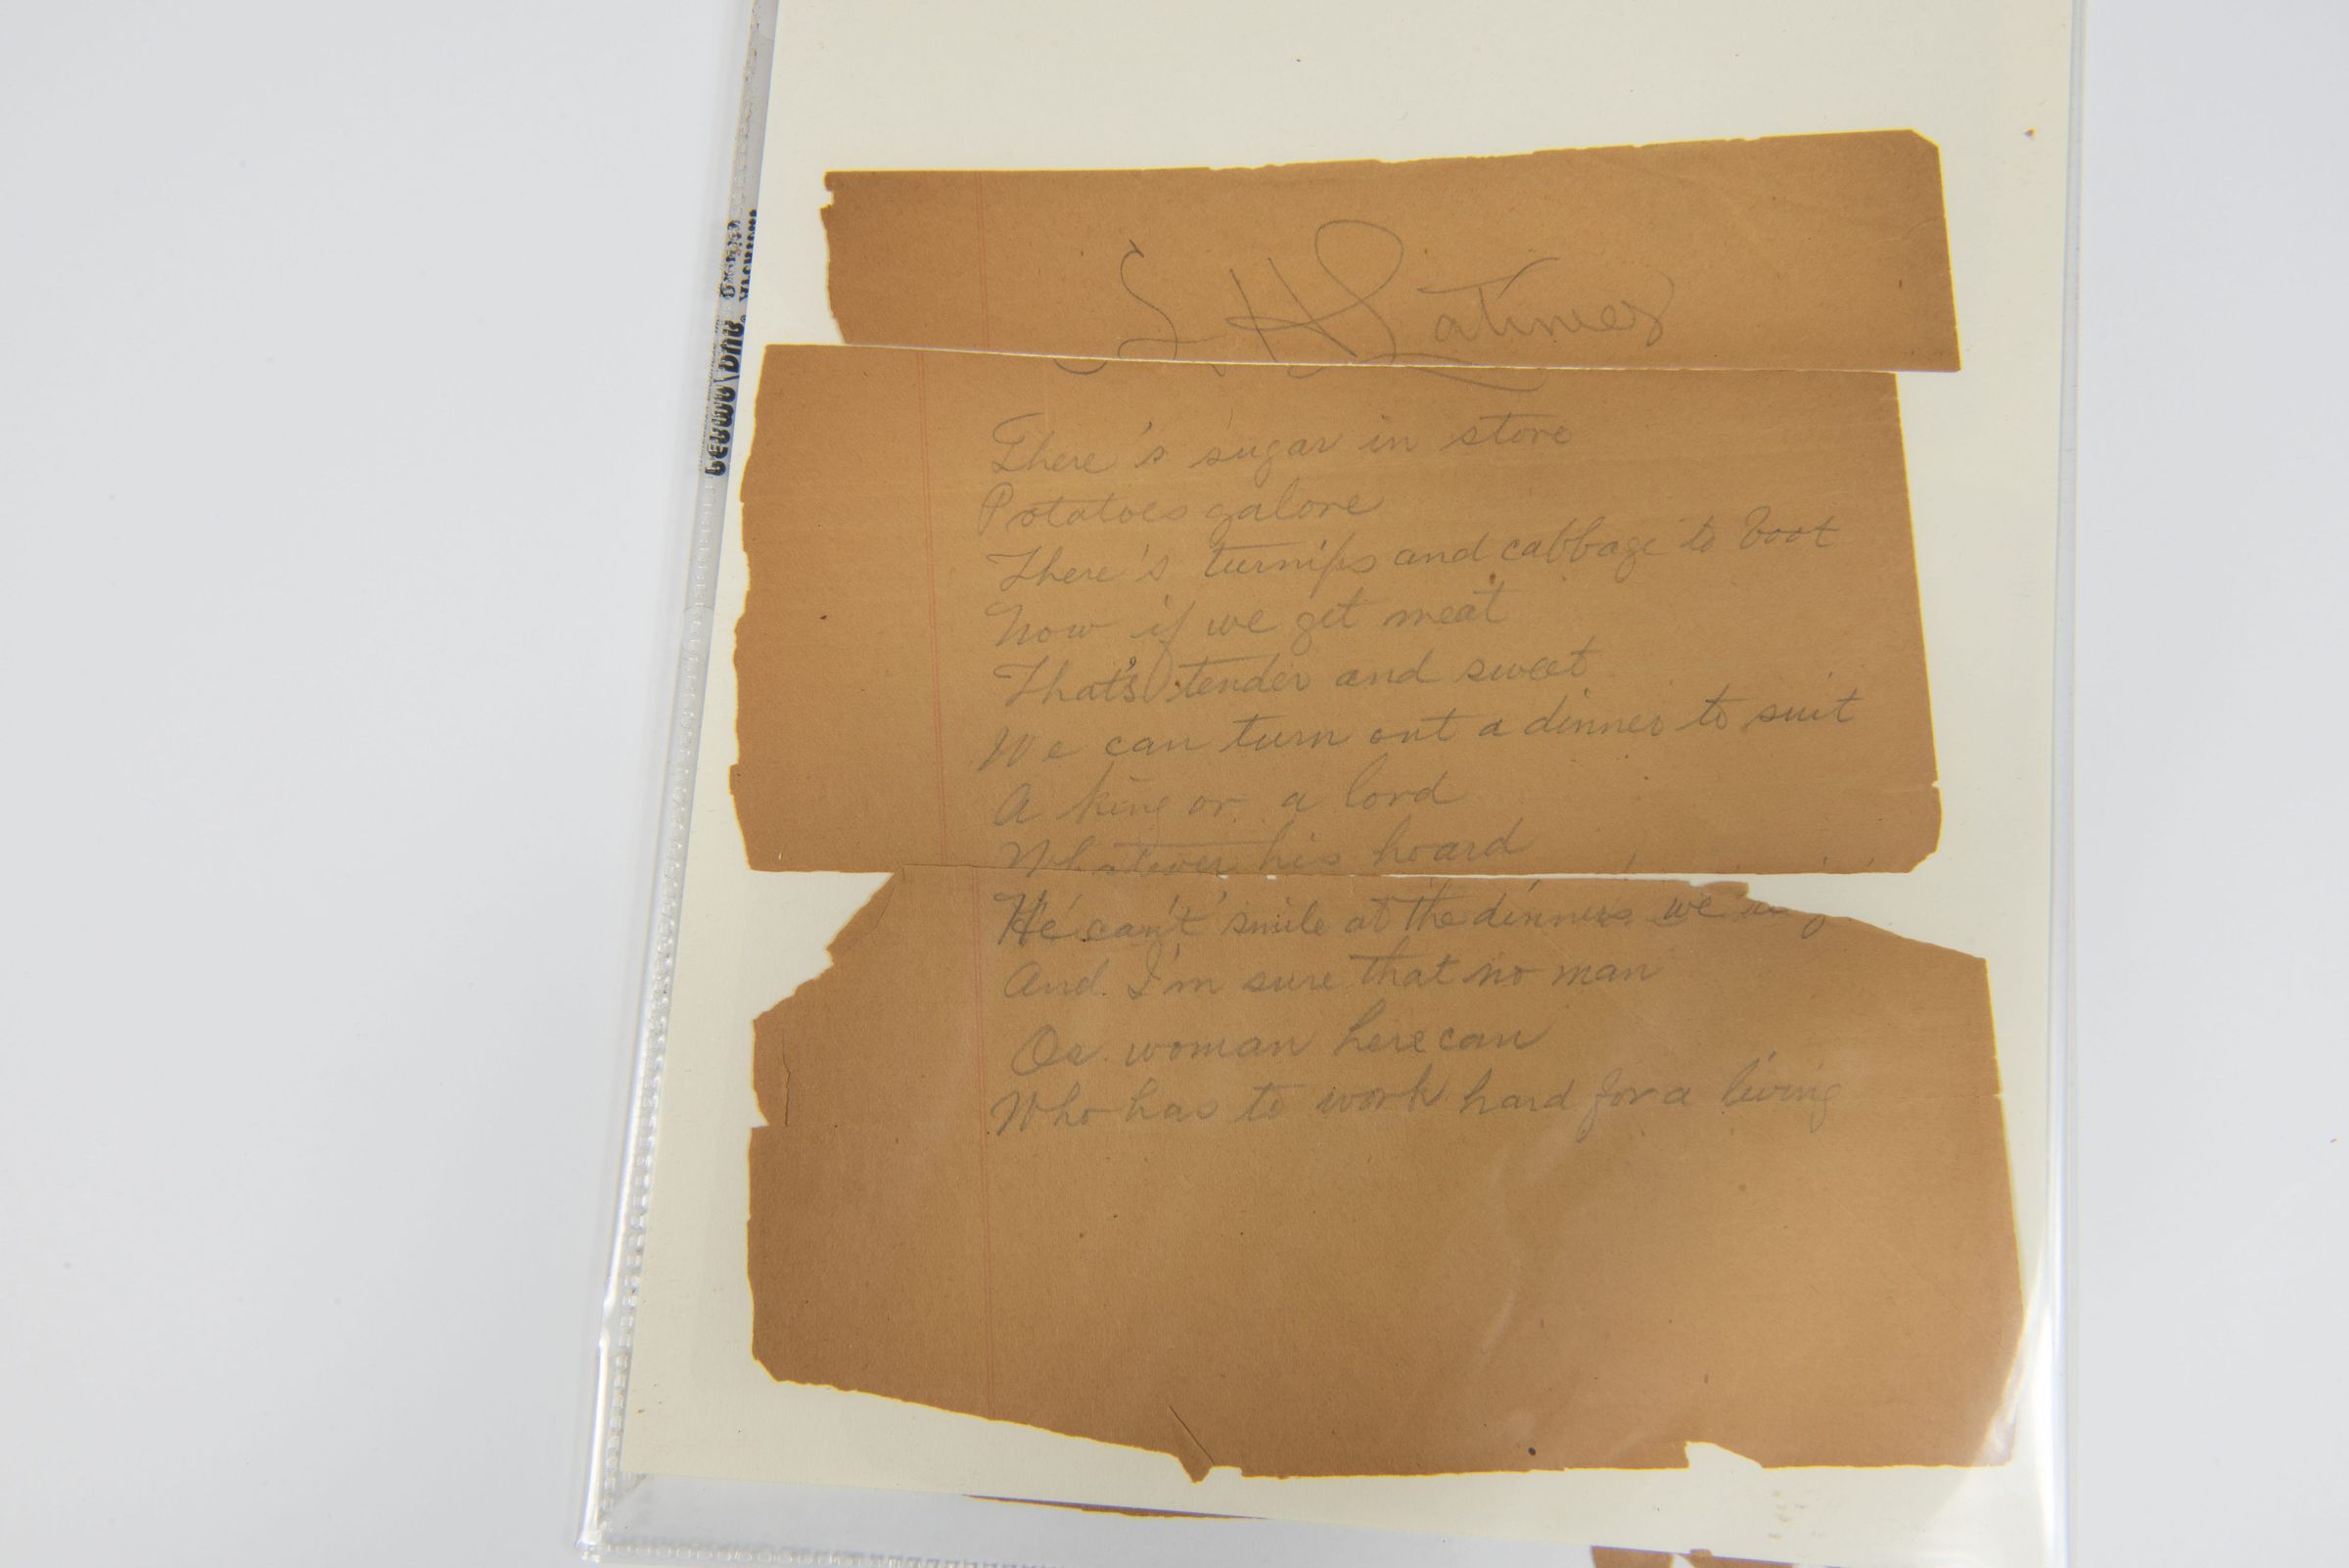 L H Latimer
There's sugar in store
Potatoes galore
There's turnips and cabbage to boot
Now if we get meat
That's tender and sweet
We can turn out a dinner to suit
A king or a lord
Whatever his hoard
He can't smile at the dinners we
And I'm sure that no man
Or woman here can
Who has to work hard for a living